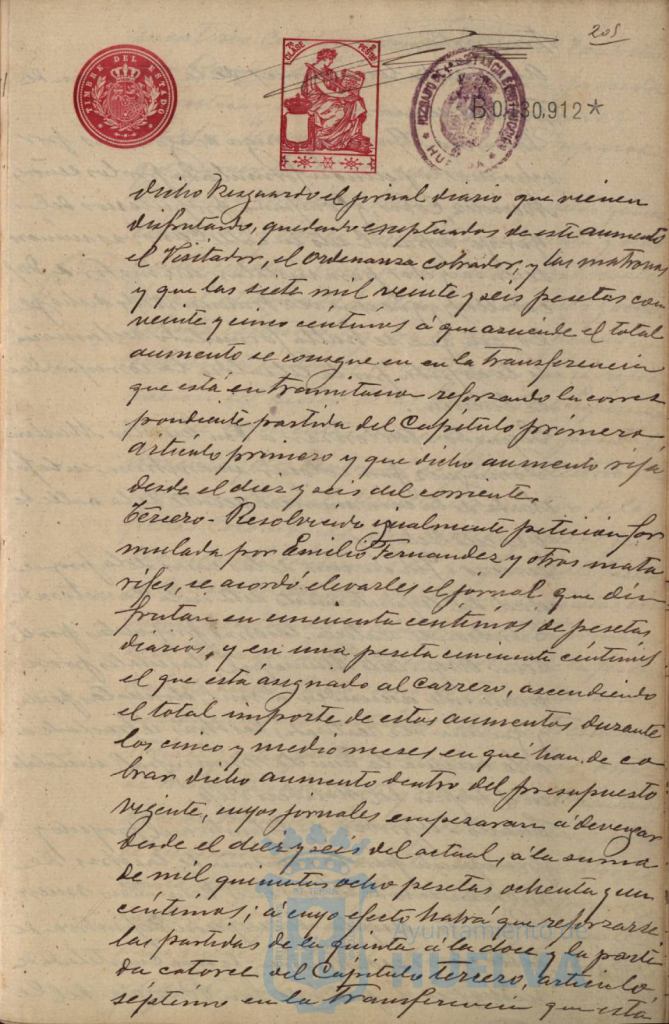 205
TIMBRE DEL ESTADO
7ª CLASE
PESETAS
JUZGADO DE 1ª INSTANCIA É INSTRUCCION
HUELVA
B.0.430,912*
dicho Resguardo el jornal diario que vienen
disfrutando, quedando exceptuados de este aumento
el Visitador, el Ordenanza cobrador, y las matronas
y que las siete mil veinte y seis pesetas con
veinte y cinco céntimos á que asciende el total
aumento se consigue en en la transferencia
que está en tramitacion reforzando la corres
pondiente partida del Capítulo primero
artículo primero y que dicho aumento rija
desde el diez y seis del corriente.
Tercero- Resolviendo igualmente peticion for
mulada por Emilio Fernandez y otros mata
rifes, se acordó elevarles el jornal que dis
frutan en cincuenta centimos de pesetas
diarios, y en una peseta cincuenta céntimos
el que está asignado al Carrero, ascendiendo
el total importe de estos aumentos durante
los cinco y medio meses en que han de co
brar dicho aumento dentro del presupuesto
vigente, cuyos jornales empezaran á devengar
desde el diez y seis del actual, á la suma
de mil quinientas ocho pesetas ochenta y un
centimos; á cuyo efecto habrá que reforzarse
las partidas de la quinta á la doce y la parti
da catorce del Capítulo tercero, artículo
séptimo en la Transferencia que está
Ayuntamiento de
HUELVA